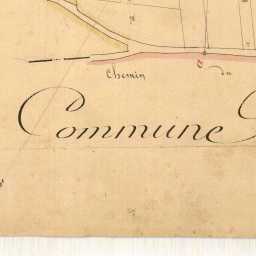 Chemin du
Commune